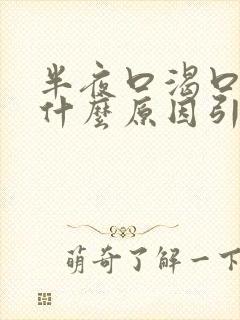 半夜口渴口
什麼原因引
萌奇了解一下